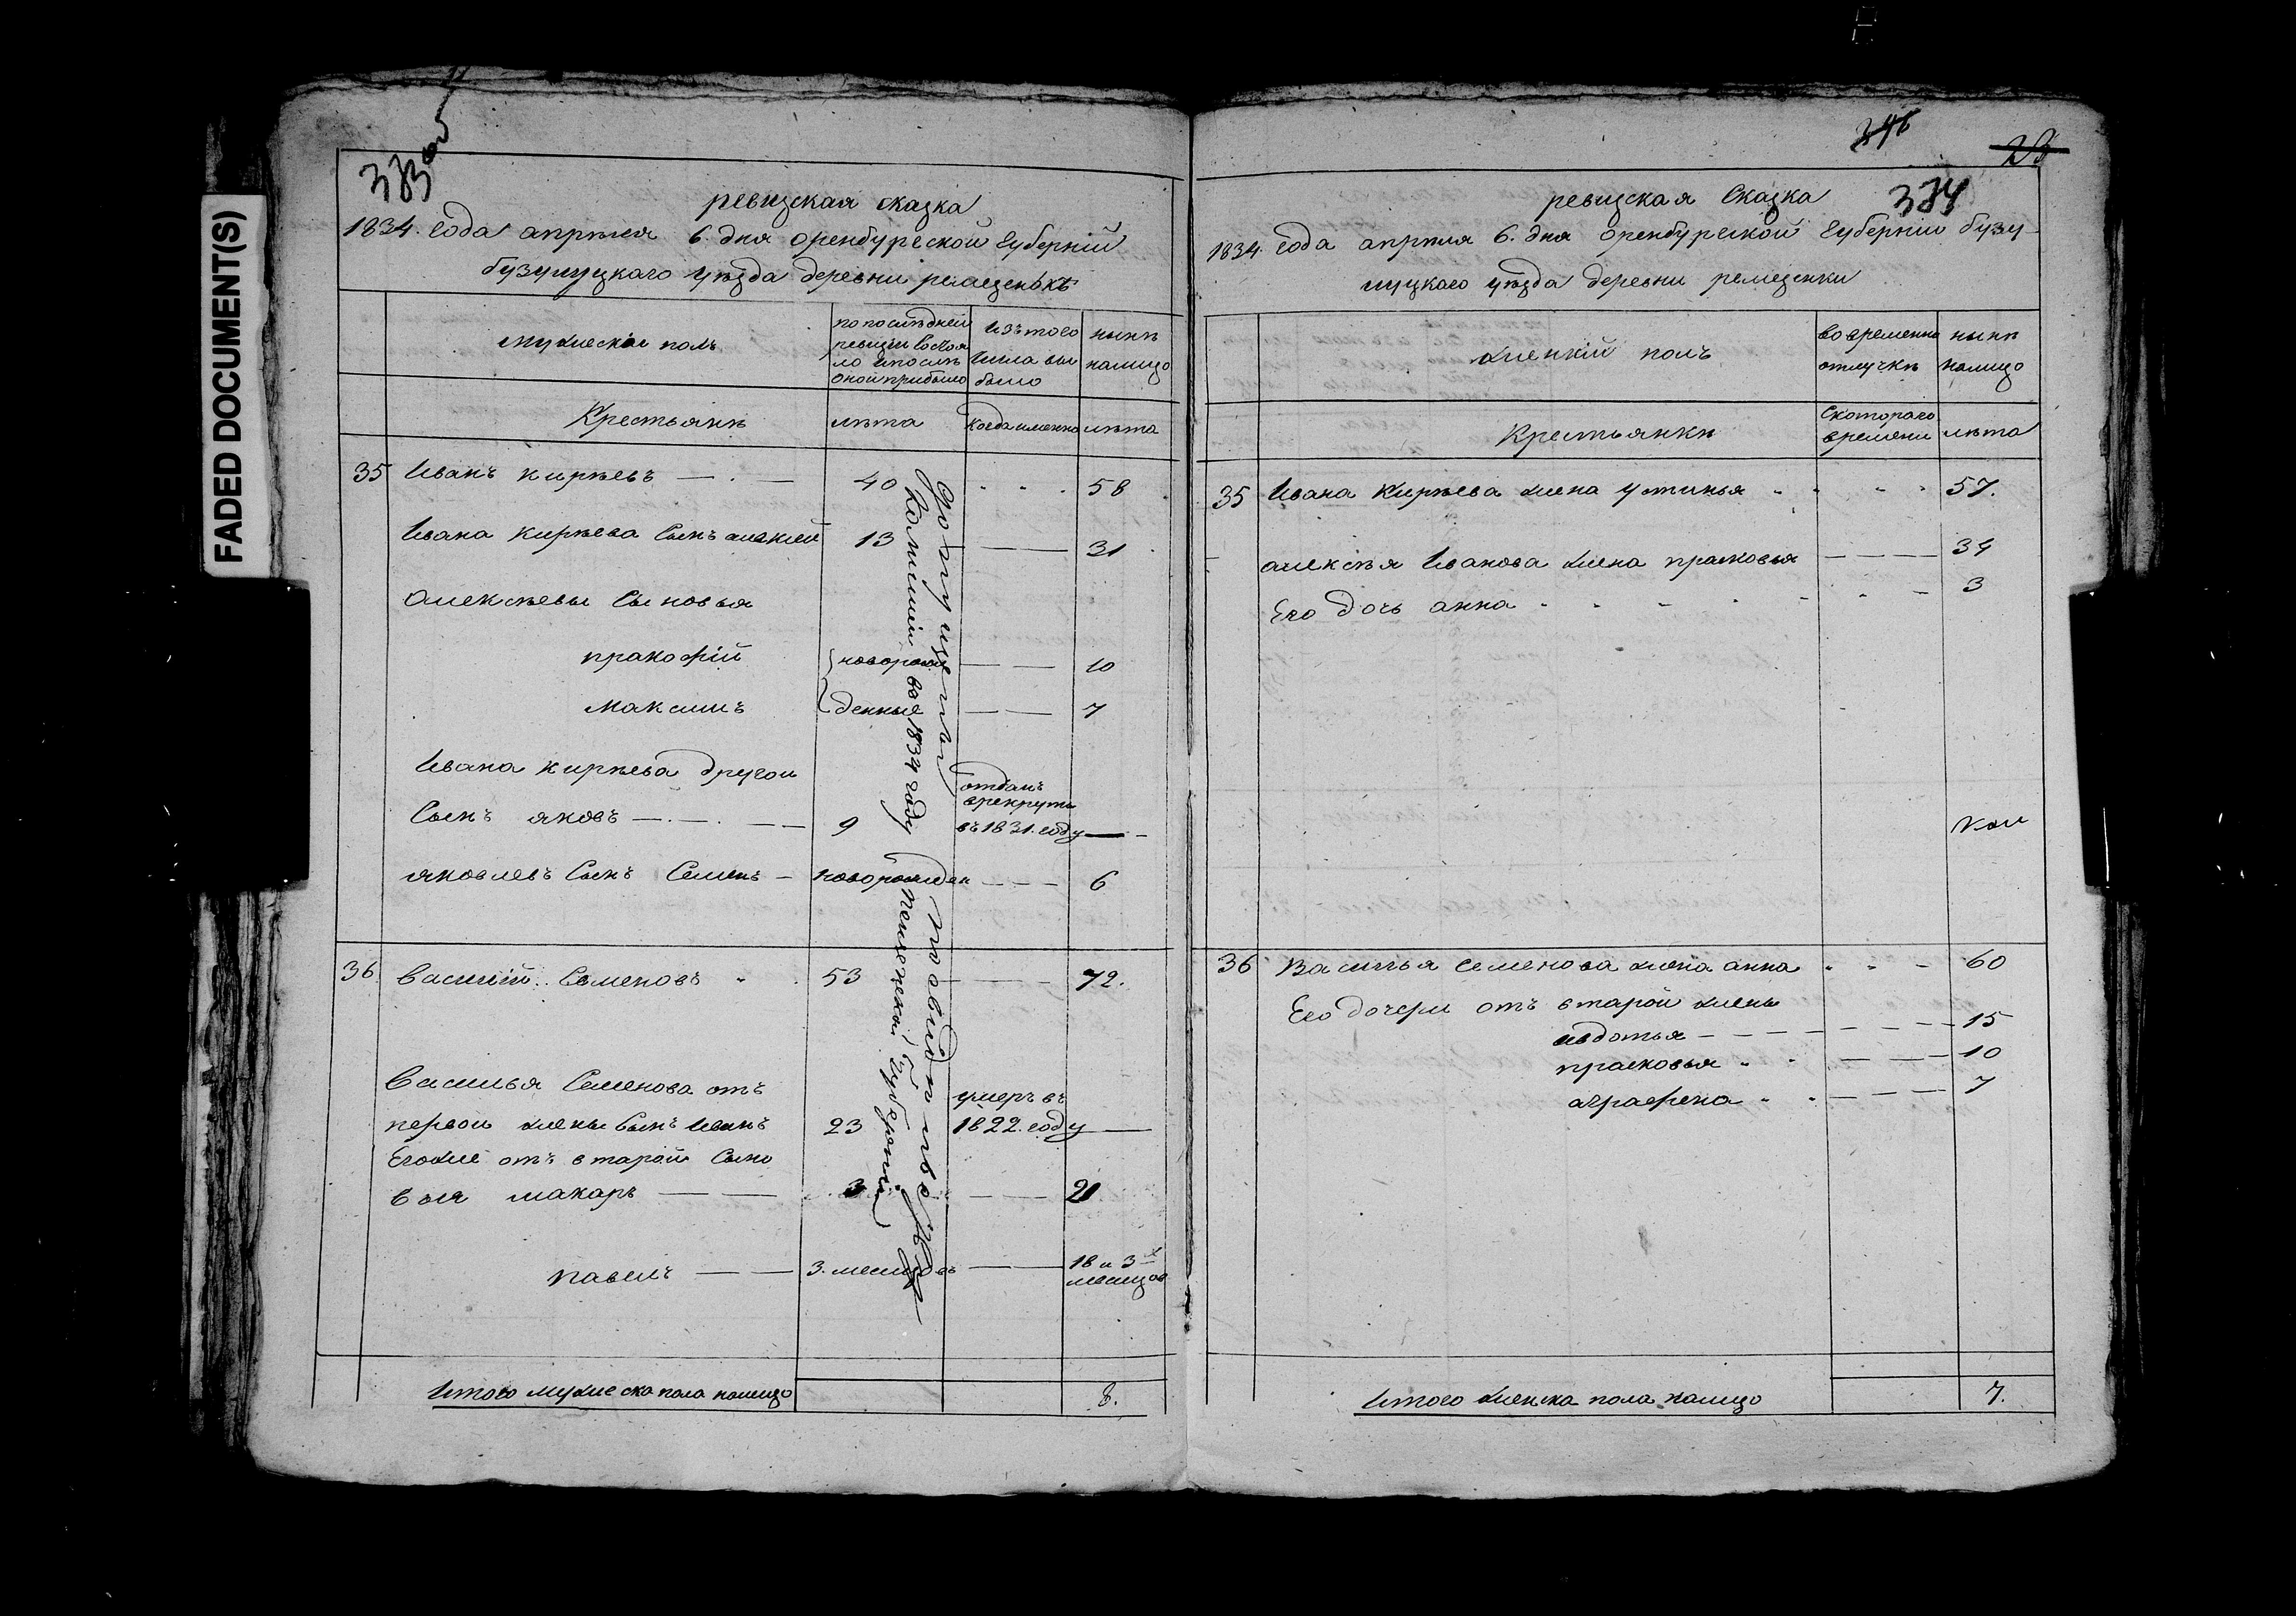 FADED DOCUMENT(S)
333 об
ревизская сказка
1834. года апрѣля 6. дня оренбургской Губерніи
бузулуцкаго уѣзда деревни ремизенькѣ
мужеской полъ
по последней
ревизіи состоя
ло и после
оной прибыло
Изъ того
числа вы
было
нынѣ
налицо
Крестьянѣ
лѣта
Когда именно
лѣта
35 Иванъ кирѣевъ 40 58
Ивана кирѣева Сынъ алексей 13 31
Алексѣевы Сыновья
пракофій новорож 10
максимъ денные 7
Ивана кирѣева другои
Сынъ яковъ 9
отданъ
врекруты
въ 1831. году
яковлевъ Сынъ Семенъ новорожден 6
36 василій Семеновъ 53 72.
Василья Семенова отъ
первои жены Сынъ Иванъ 23
умеръ въ
1822. году
Егоже отъ второй Сыно
вья макаръ 3 21
павелъ 3. месяцовъ 18 и 3х
месяцов
Итого мужеска пола налицо 8.
1834 году
Губерніи
346
23
334
ревизская Сказка
1834. года апрѣля 6. дня оренбургской Губерніи бузу
луцкаго уѣзда деревни ремизенки
женкій полъ
во временно
отлучкѣ
нынѣ
налицо
Крестьянкѣ
Скотораго
времени
лѣта
35 Ивана Кирѣева жена устинья 57.
алексѣя Иванова жена прасковья 34
Его дочь анна 3
36 Василья семенова жена анна 60
Его дочери отъ второи жены
авдотья 15
прасковья 10
аграфена 7
Итого женска пола налицо 7.